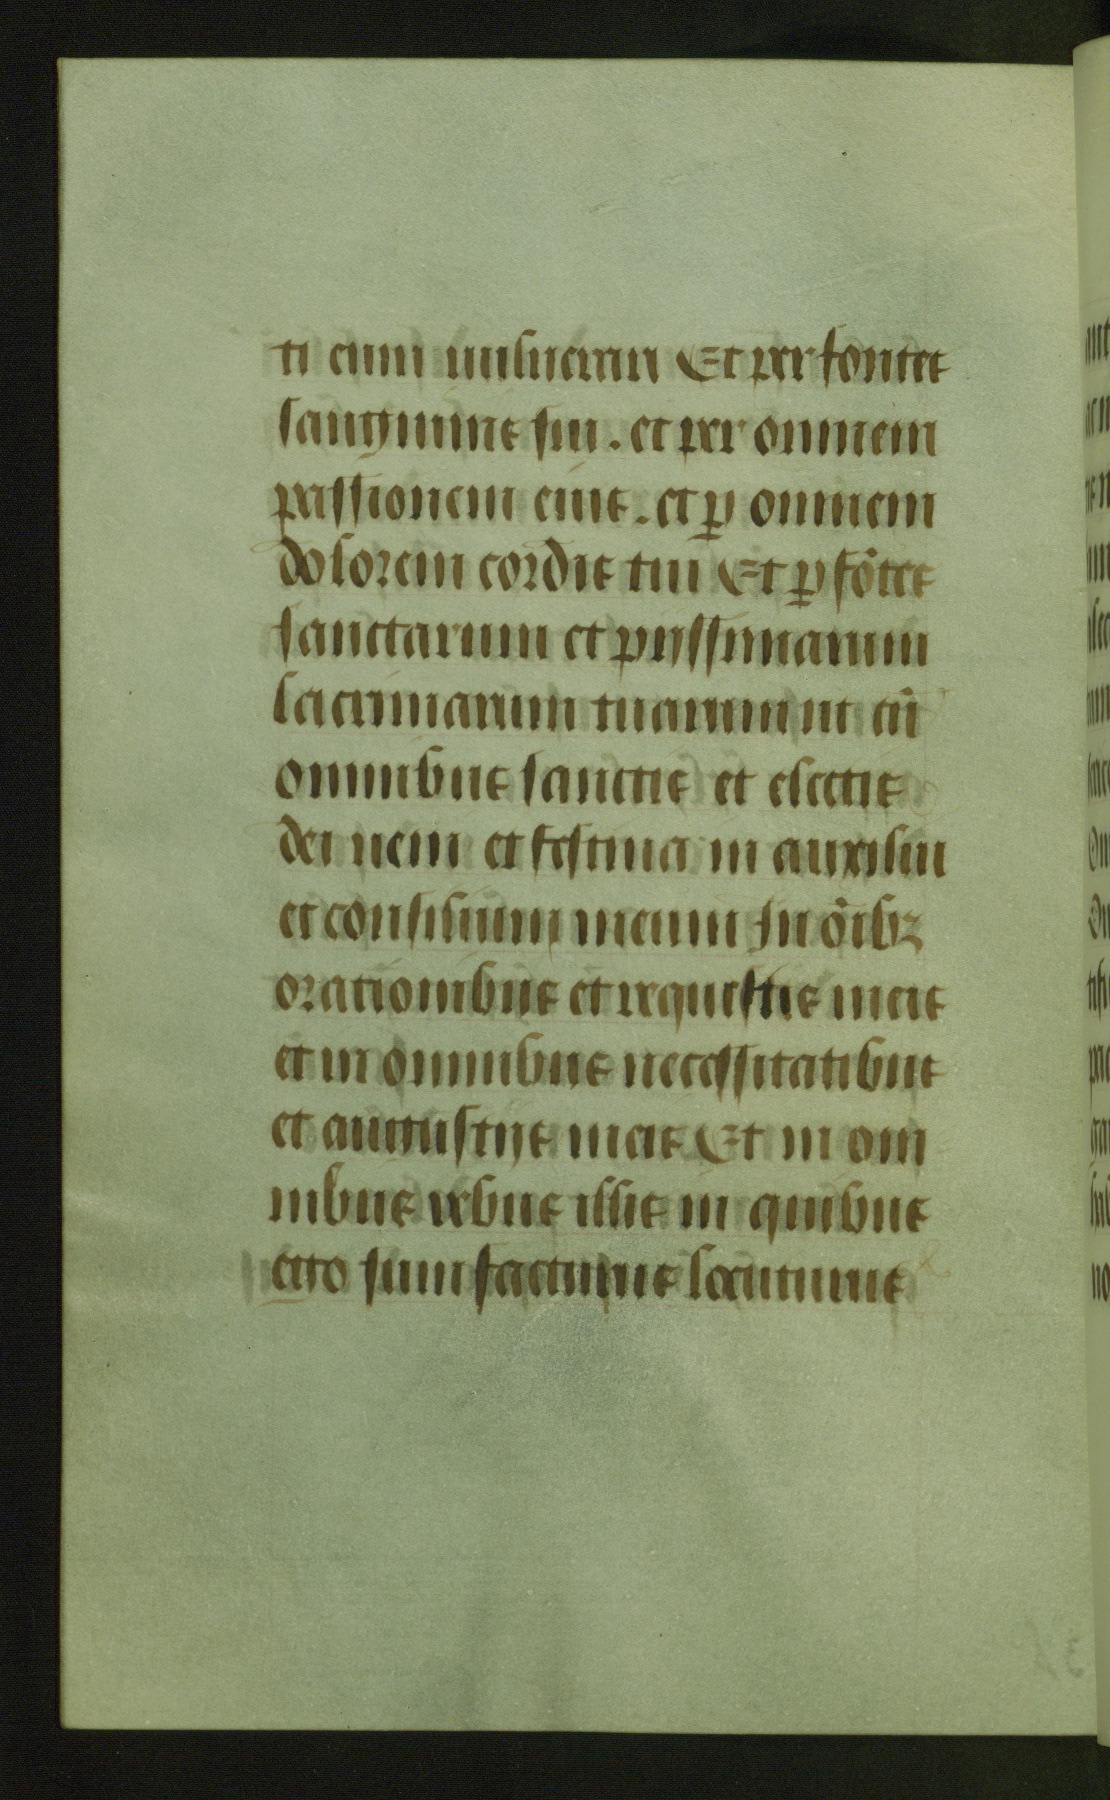 ti eum vulneran Et per fontes
sanguinine sui . et per omnem
passionem eius . et p̱ omnem
dolorem cordis tui Et p̱ fōtes
sanctarum et pijssimarum
lacrimarum tuarum ut cū
omnibus sanctis et electis
dei veni et festina in auxiliu
et consilium meum In oībꝫ
orationibus et requestis meis
et in omnibus necessitatibus
et angustijs meis Et in om
nibus rebus illis in quibus
ego sum facturus locuturus